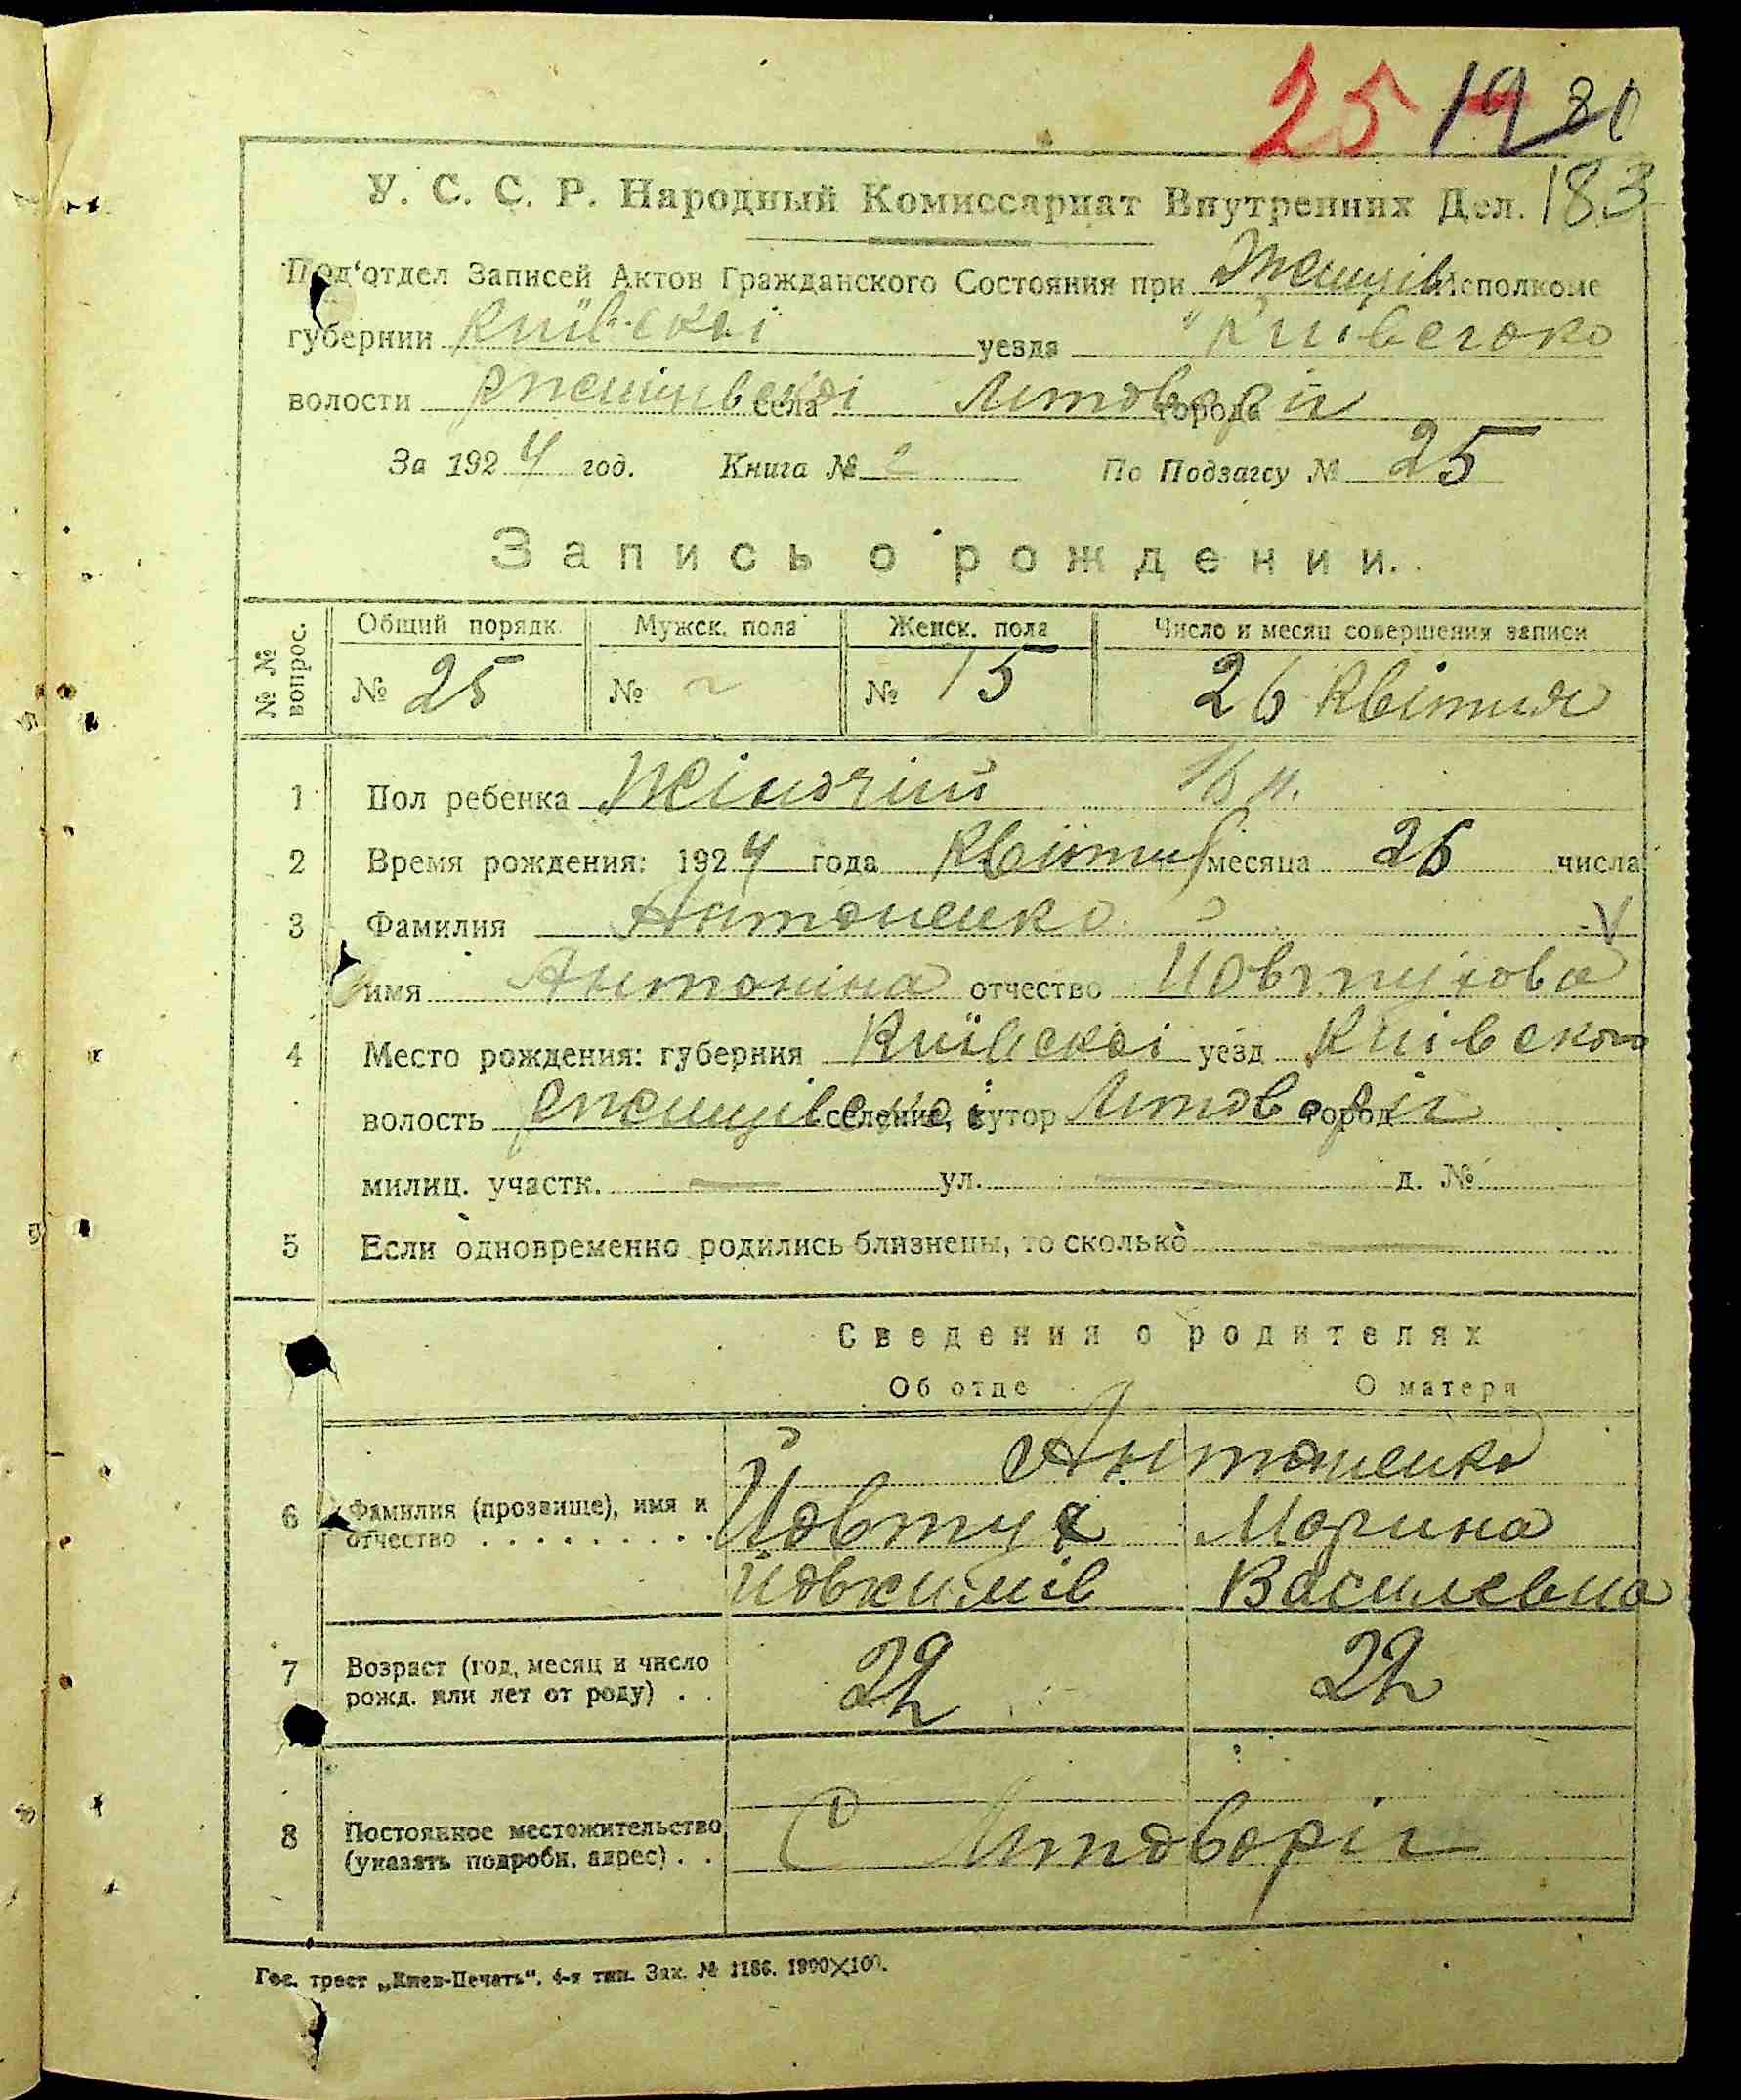 25 19 81
У. С. С. Р. Народный Комиссариат Внутренних Дел. 183
Под'отдел Записей Актов Гражданского Состояния при Исполкоме
губернии Київскої уезда Київсько
волости села Литовор города
За 1924 год. Книга № По Подзагсу № 25
Запись о рождении.
№ № вопрос. Общий порядк. Мужск. пола Женск. пола Число и месяц совершения записи
№ 25 № № 15 26 Квітня
1 Пол ребенка Жіночий
2 Время рождения: 1924 года Квітня месяца 26 числа
3 Фамилия Антоненко V
имя Антоніна отчество Йовтухова
4 Место рождения: губерния Київскої уезд Київсково
волость селение, хутор город
милиц. участк. — ул. — д. №
5 Если одновременно родились близнецы, то сколько —
Сведения о родителях
Об отце О матери
Антоненко
6 Фамилия (прозвище), имя и отчество . . . . . . . . . Йовтух Марина
Йовхимів Василевна
7 Возраст (год, месяц и число рожд. или лет от роду) . . 22 22
8 Постоянное местожительство (указать подробн. адрес) . . С
Гос. трест „Киев-Печать". 4-я тип. Зак. № 1186. 1900×100.